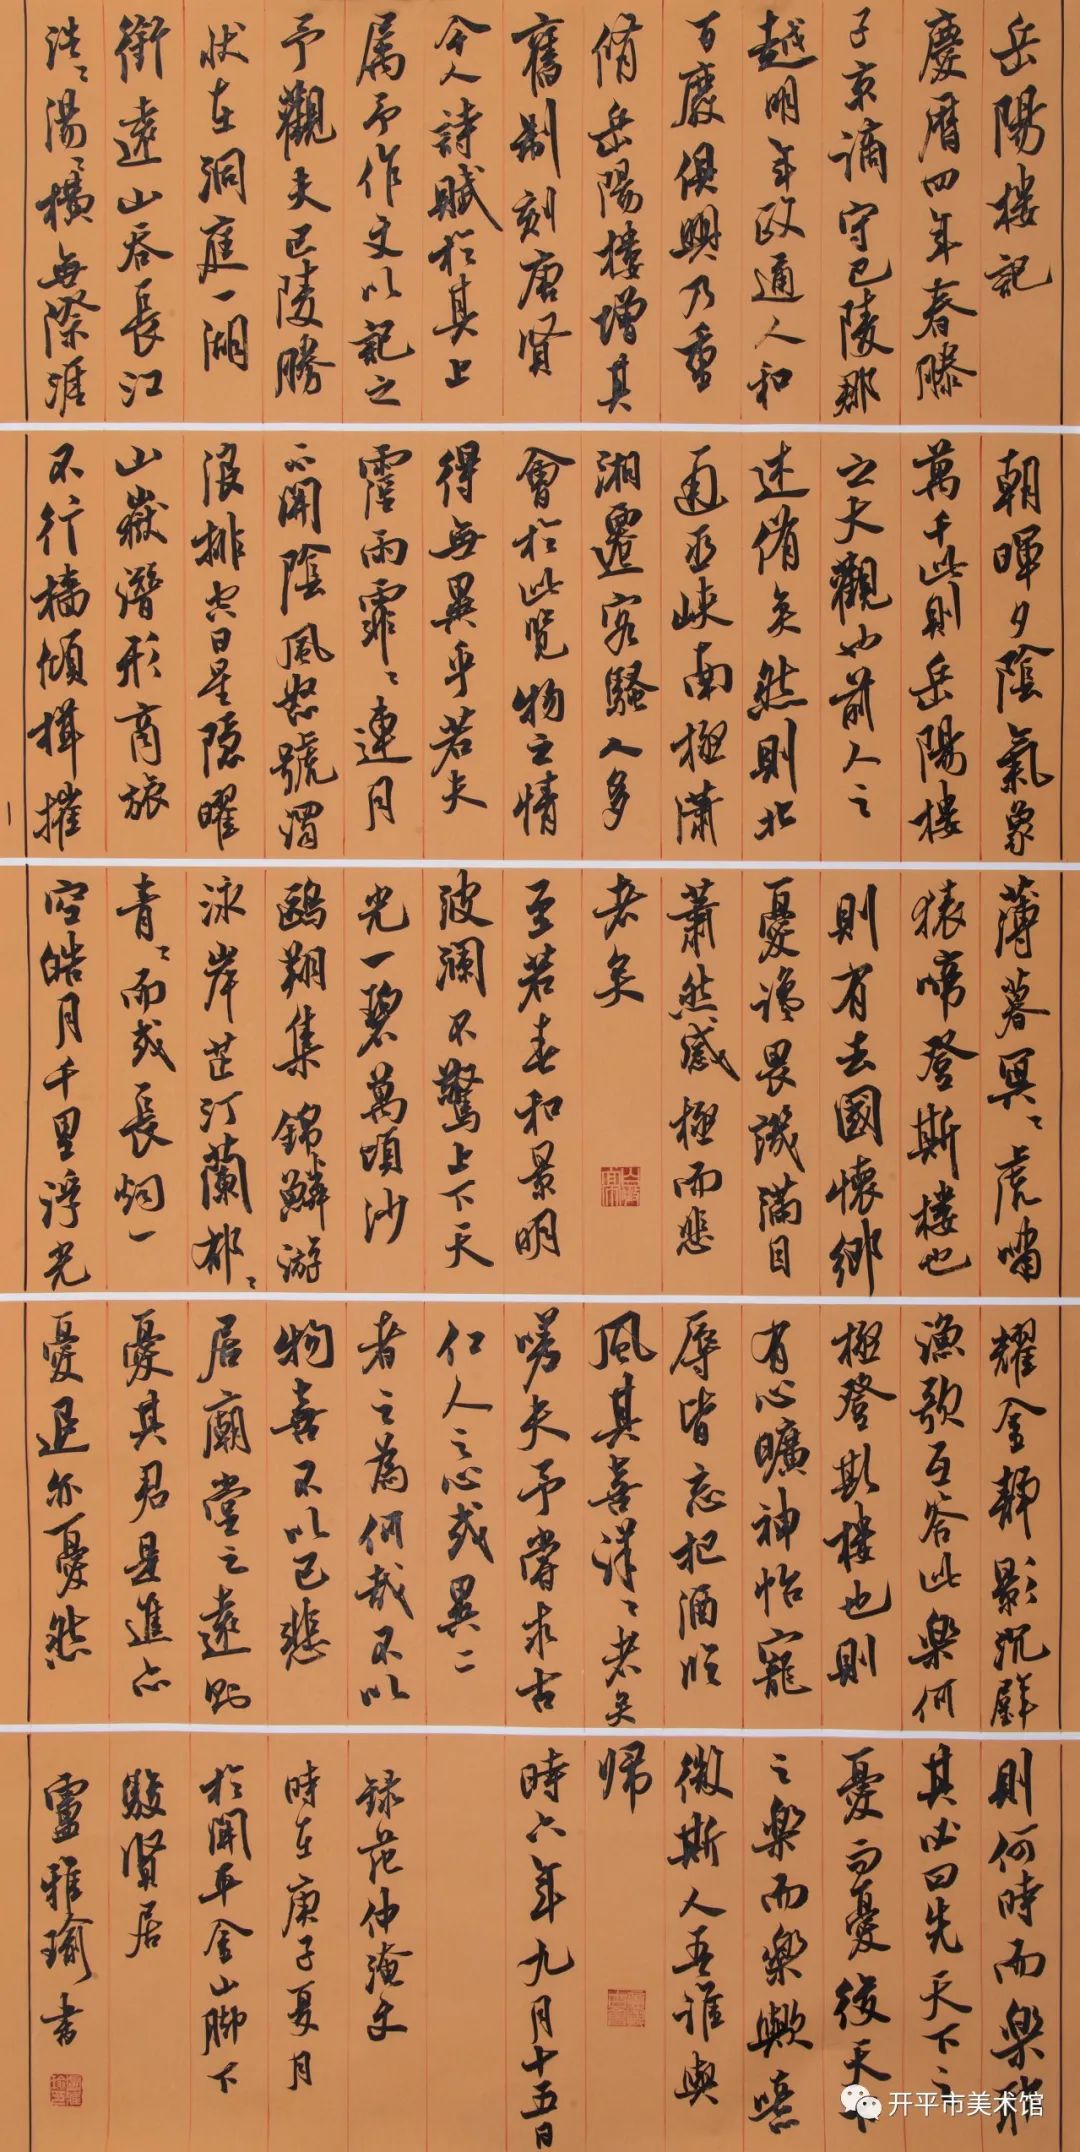 岳陽樓記
慶曆四年春滕
子京謫守巴陵郡
越明年政通人和
百廢俱興乃重
脩岳陽樓增其
舊制刻唐賢
今人詩賦於其上
属予作文以記之
予觀夫巴陵勝
狀在洞庭一湖
銜遠山吞長江
浩〻湯〻橫無際涯
朝暉夕陰氣象
萬千此則岳陽樓
之大觀也前人之
述俻矣然則北
通巫峽南極瀟
湘遷客騷人多
會於此覽物之情
得無異乎若夫
霪雨霏〻連月
不開陰風怒號濁
浪排空日星隱曜
山嶽潛形商旅
不行檣傾楫摧
薄暮冥〻虎嘯
猿啼登斯樓也
則有去國懷鄉
憂讒畏譏滿目
蕭然感極而悲
者矣
至若春和景明
波瀾不驚上下天
光一碧萬頃沙
鷗翔集錦鱗游
泳岸芷汀蘭郁〻
青〻而或長烟一
空皓月千里浮光
耀金靜影沉璧
漁歌互答此樂何
極登斯樓也則
有心曠神怡寵
辱皆忘把酒臨
風其喜洋〻者矣
嗟夫予嘗求古
仁人之心或異二
者之為何哉不以
物喜不以己悲
居廟堂之遠則
憂其君是進亦
憂退亦憂然
則何時而樂耶
其必曰先天下之
憂而憂後天下
之樂而樂歟噫
微斯人吾誰與
歸
時六年九月十五日
錄范仲淹文
時在庚子夏月
於開平金山腳下
駿賢居
盧雅瑜書
开平市美术馆